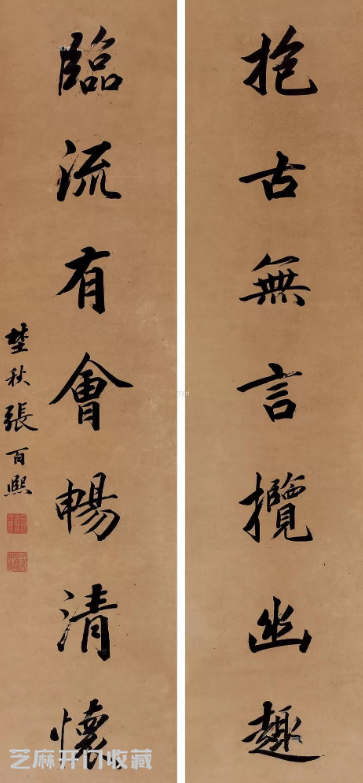 抱古無言攬幽趣
臨流有會暢清懷
埜秋張百熙
芝麻开门收藏